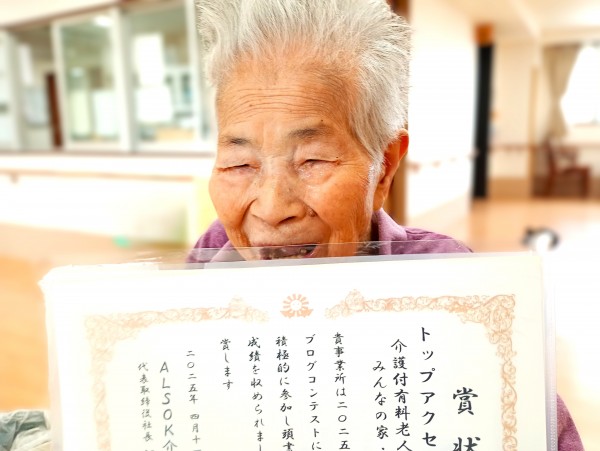 賞状
トップアクセ
介護付有料老人
みんなの家・
貴事業所は二〇二五
ブログコンテストに
積極的に参加し頭書
成績を収められまし
賞します
二〇二五年 四月十一
ALSOK介
代表取締役社長